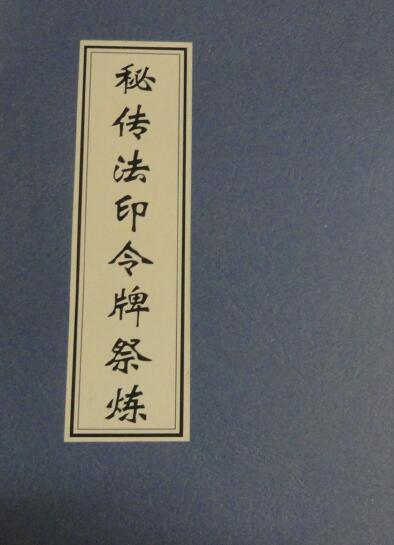 秘传法印令牌祭炼